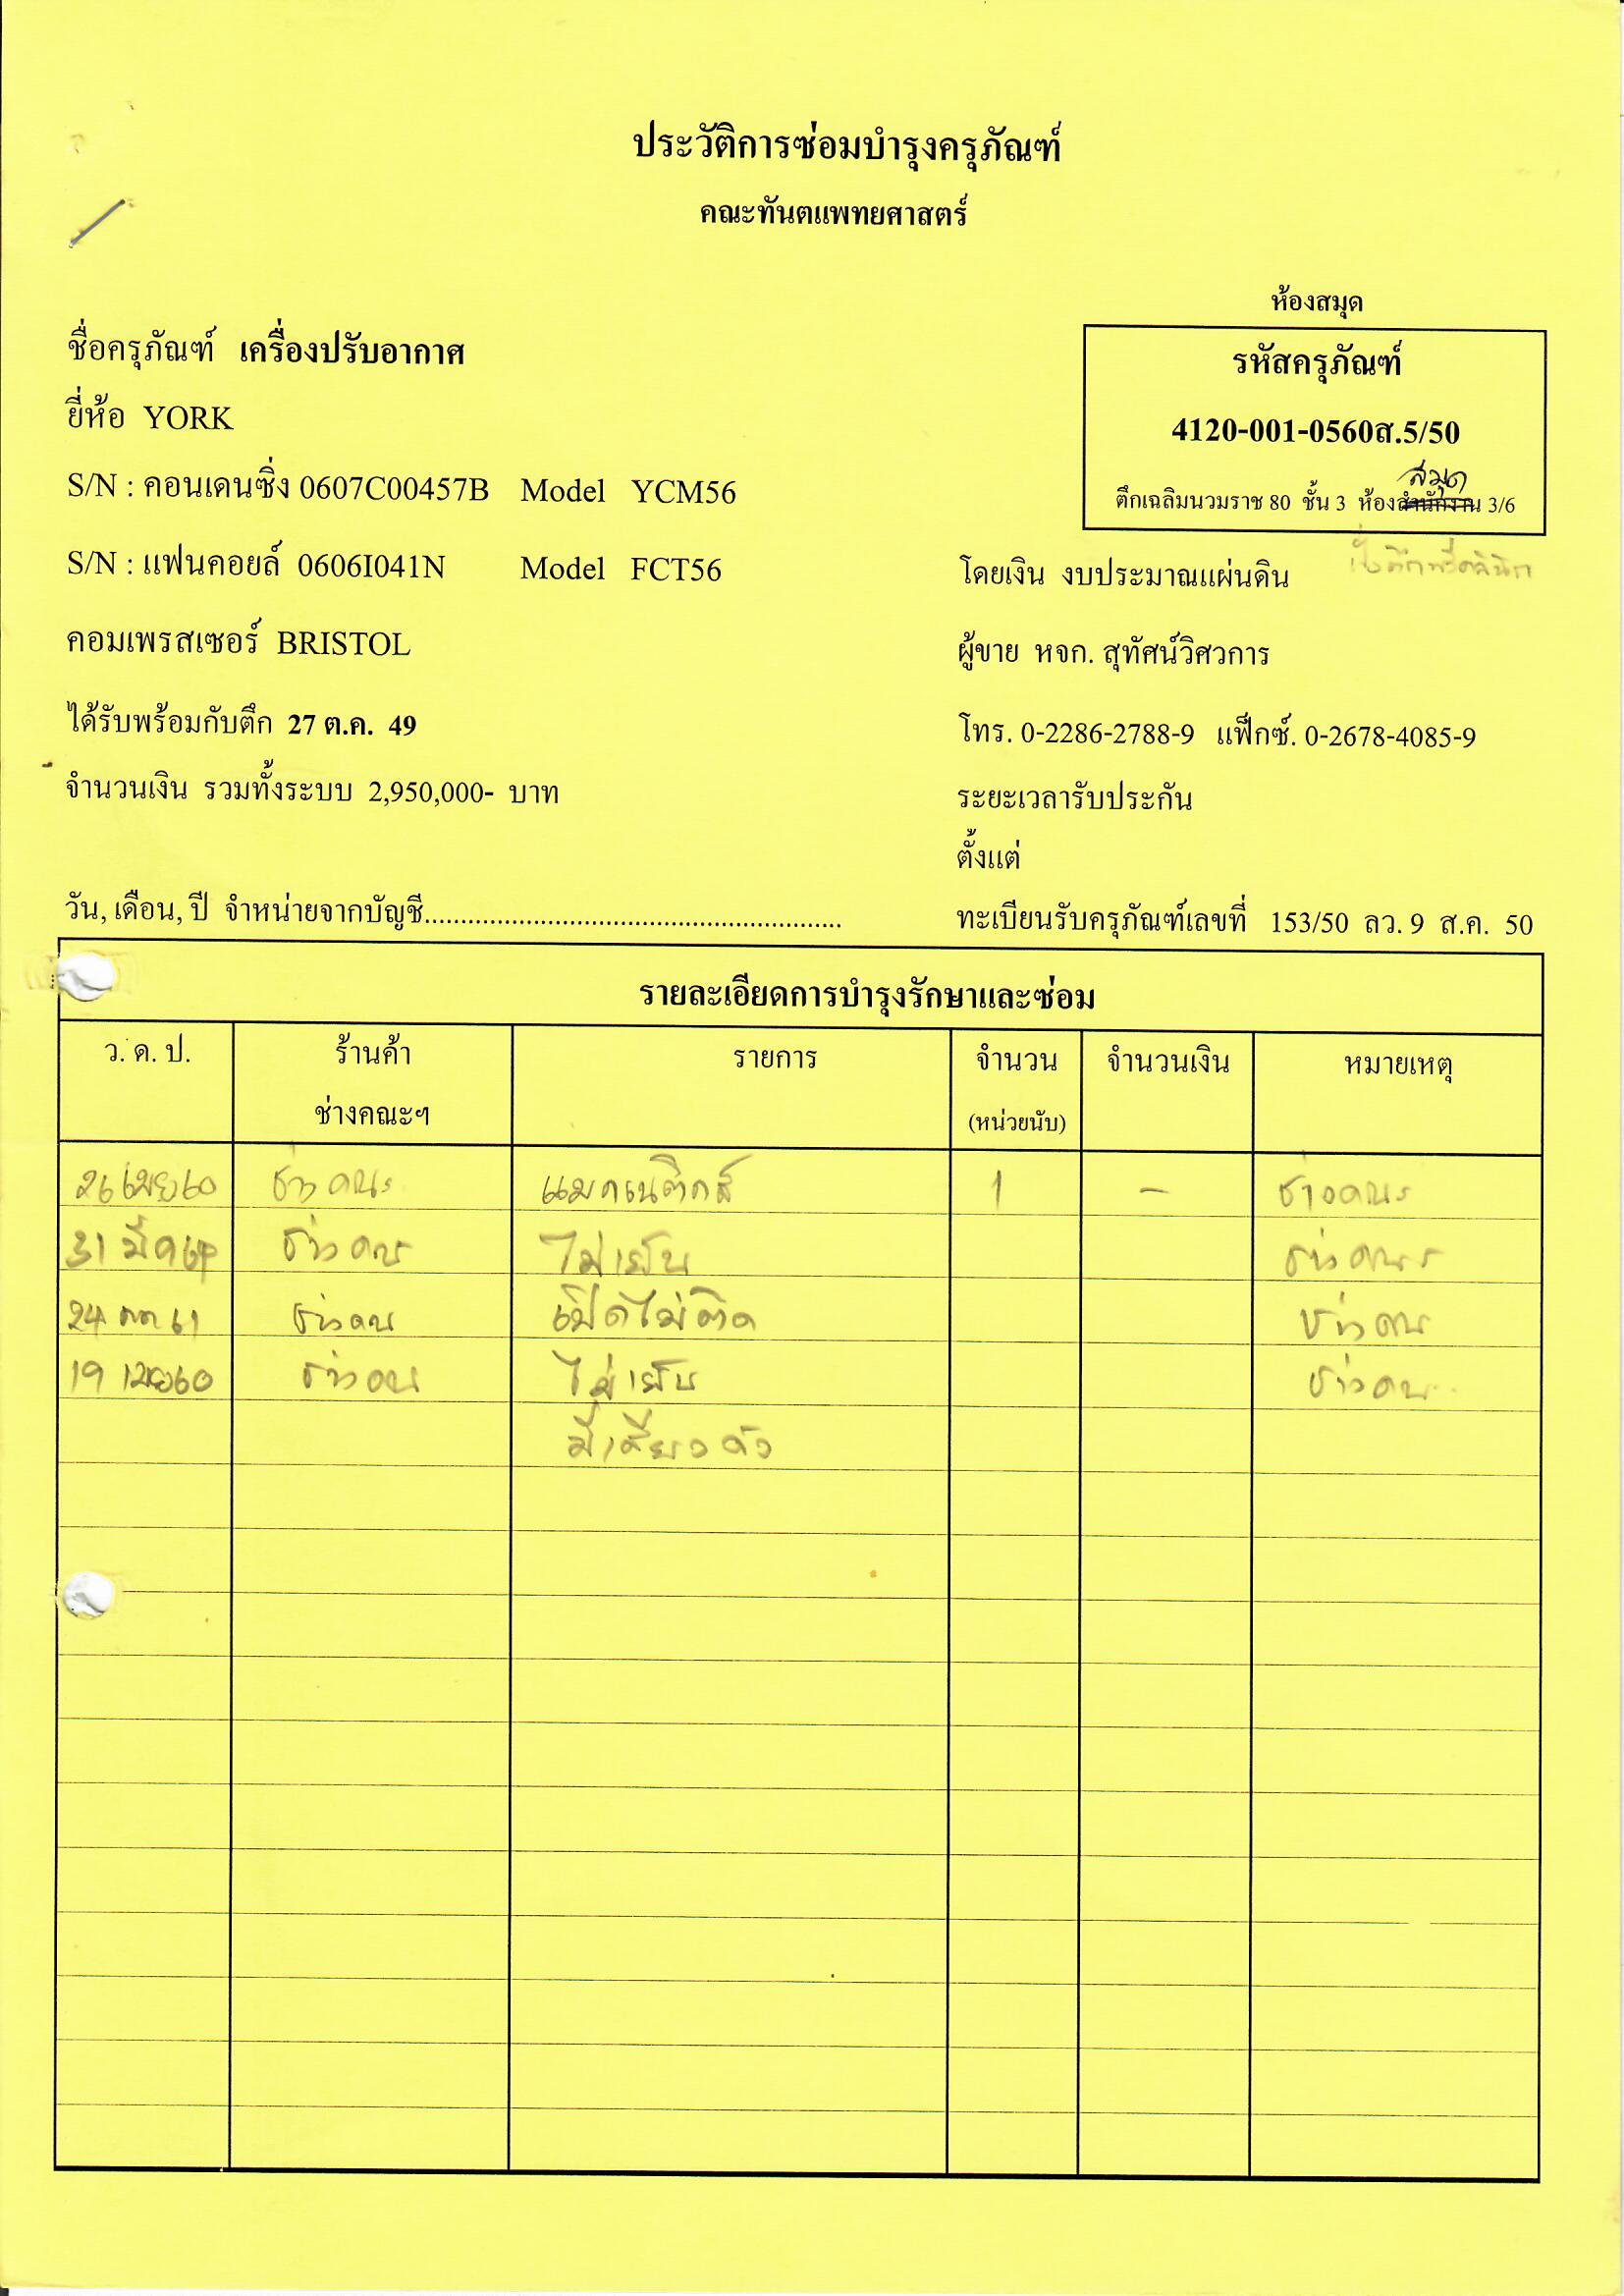 ประวัติการซ่อมบำรุงครุภัณฑ์
คณะทันตแพทยศาสตร์
ห้องสมุด
ชื่อครุภัณฑ์ เครื่องปรับอากาศ
รหัสครุภัณฑ์
ยี่ห้อ YORK
4120-001-0560ส.5/50
สมุด
S/N : คอนเดนซิ่ง 0607C00457B Model YCM56
ตึกเฉลิมนวมราช 80 ชั้น 3 ห้องสำนักงาน 3/6
S/N : แฟนคอยล์ 0606I041N Model FCT56
โดยเงิน งบประมาณแผ่นดิน
คอมเพรสเซอร์ BRISTOL
ผู้ขาย หจก. สุทัศน์วิศวการ
ได้รับพร้อมกับตึก 27 ต.ค. 49
โทร. 0-2286-2788-9 แฟ็กซ์. 0-2678-4085-9
จำนวนเงิน รวมทั้งระบบ 2,950,000- บาท
ระยะเวลารับประกัน
ตั้งแต่
วัน, เดือน, ปี จำหน่ายจากบัญชี......................................................
ทะเบียนรับครุภัณฑ์เลขที่ 153/50 ลว. 9 ส.ค. 50
รายละเอียดการบำรุงรักษาและซ่อม
ว. ด. ป. ร้านค้า รายการ จำนวน จำนวนเงิน หมายเหตุ
ช่างคณะฯ (หน่วยนับ)
26 เมย 60 ช่างคณะ แมคเนติกส์ 1 - ช่างคณะ
31 มีค ช่างคณะ ไม่เย็น ช่างคณะ
24 61 ช่างคณะ เปิดไม่ติด ช่างคณะ
19 เมย 60 ช่างคณะ ไม่เย็น ช่างคณะ
มีเสียงดัง